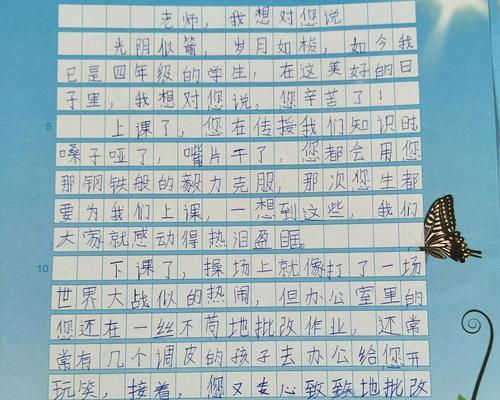 老师，我想对您说
光阴似箭，岁月如梭，如今我
已是四年级的学生，在这美好的日
子里，我想对您说，您辛苦了！
5 上课了，您在传授我们知识时
嗓子哑了，嘴片干了，您都会用您
那钢铁般的毅力克服，那次您生都
要为我们上课，一想到这些，我们
大家就感动得热泪盈眶。
10 下课了，操场上就像打了一场
世界大战似的热闹，但办公室里的
您还在一丝不苟地批改作业，还常
常有几个调皮的孩子去办公给您开
玩笑，接着，您又专心致致地批改